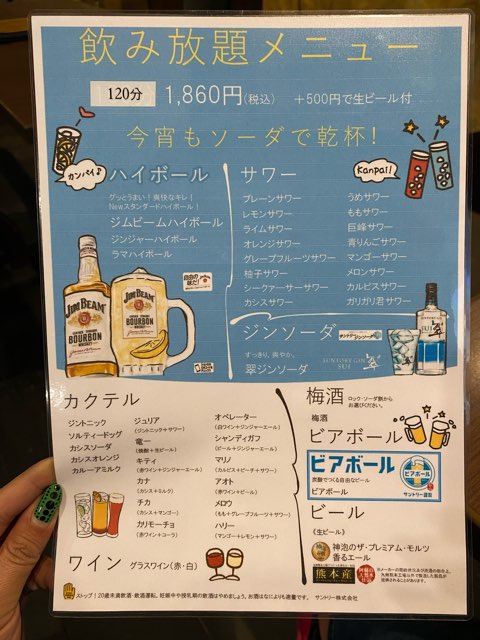 飲み放題メニュー
120分 1,860円(税込) +500円で生ビール付
今宵もソーダで乾杯!
カンパイ♪
ハイボール
グッとうまい!爽快なキレ!
Newスタンダードハイボール!
ジムビームハイボール
ジンジャーハイボール
ラマハイボール
JIM BEAM
BOURBON
WHISKEY
JIM BEAM
BOURBON
WHISKEY
自由の味だ!
Kanpai!
サワー
プレーンサワー
レモンサワー
ライムサワー
オレンジサワー
グレープフルーツサワー
柚子サワー
シークァーサーサワー
カシスサワー
うめサワー
ももサワー
巨峰サワー
青りんごサワー
マンゴーサワー
メロンサワー
カルピスサワー
ガリガリ君サワー
ジンソーダ
すっきり、爽やか。
翠ジンソーダ
SUNTORY GIN
SUI 翠
SUI
翠
カクテル
ジントニック
ソルティードッグ
カシスソーダ
カシスオレンジ
カルーアミルク
ジュリア
(ジントニック+サワー)
竜一
(焼酎+生ビール)
キティ
(赤ワイン+ジンジャーエール)
カナ
(カシス+ミルク)
チカ
(カシス+マンゴー)
カリモーチョ
(赤ワイン+コーラ)
オペレーター
(白ワイン+ジンジャーエール)
シャンディガフ
(ビール+ジンジャーエール)
マリノ
(カルピス+ピーチ+サワー)
アオト
(赤ワイン+ビール)
メロウ
(もも+グレープフルーツ+サワー)
ハリー
(マンゴー+レモン+サワー)
ワイン グラスワイン(赤・白)
梅酒 ロック・ソーダ割から
お選びください。
梅酒
ビアボール
ビアボール
炭酸でつくる自由なビール
ビアボール
ビアボール
サントリー謹製
ビール
《生ビール》
神泡のザ・プレミアム・モルツ
香るエール
熊本産
阿蘇の天然水
ストップ!20歳未満飲酒・飲酒運転。妊娠中や授乳期の飲酒はやめましょう。お酒はなによりも適量です。 サントリー株式会社